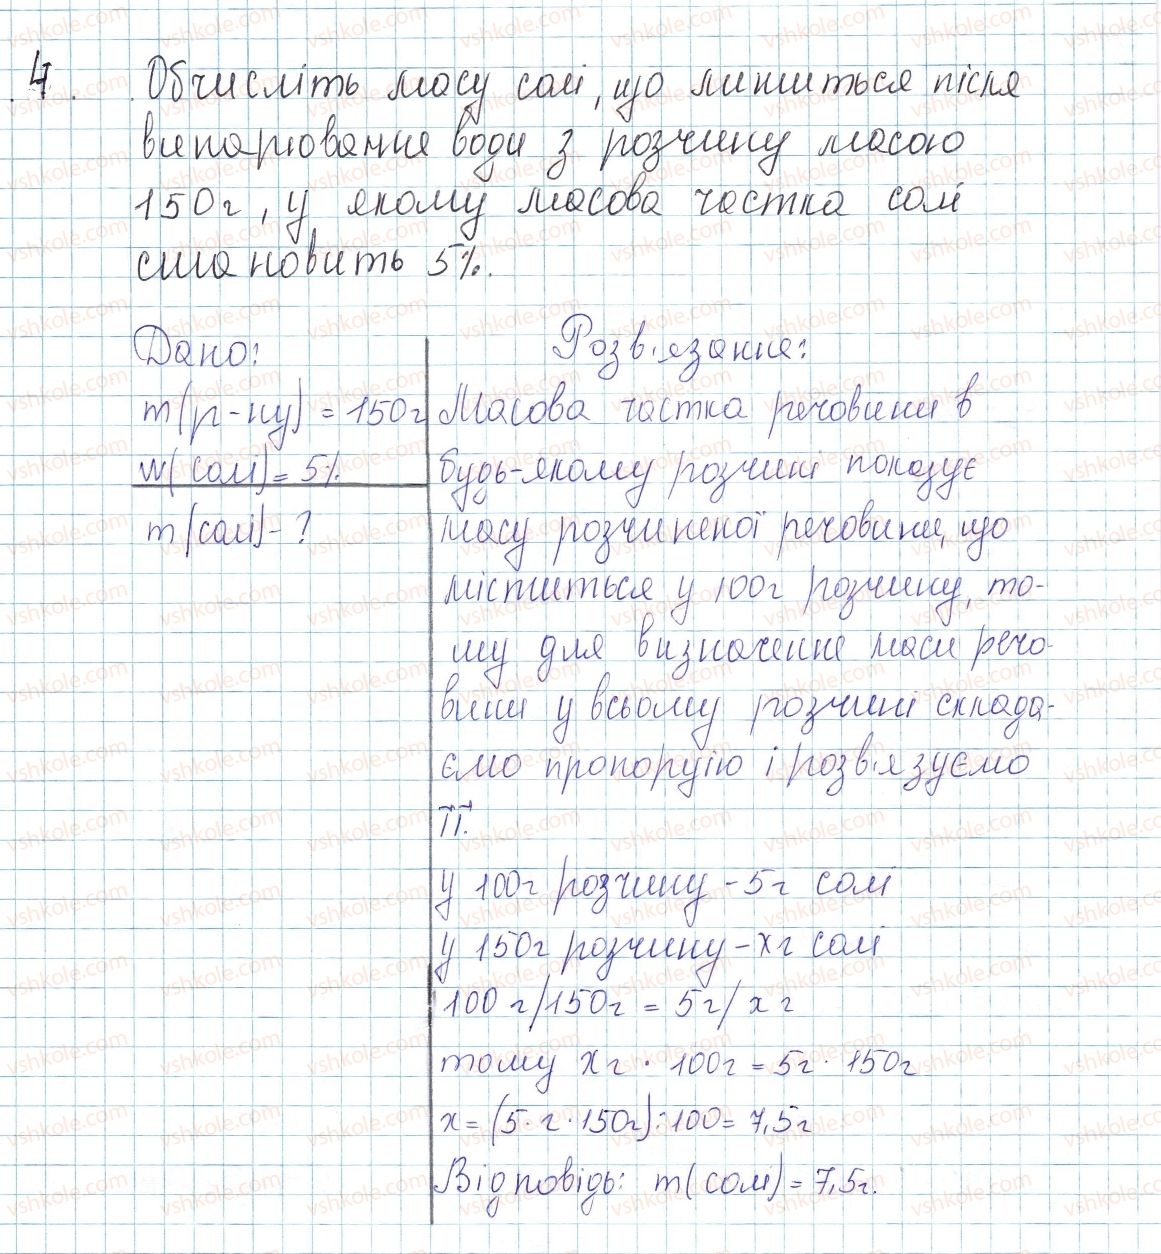 4. Обчисліть масу солі, що лишиться після
випарювання води з розчину масою
150г, у якому масова частка солі
становить 5%.
Дано:
m(р-ну) = 150г
w(солі) = 5%
m(солі) - ?
Розв'язання:
Масова частка речовини в
будь-якому розчині показує
масу розчиненої речовини, що
міститься у 100г розчину, то-
му для визначення маси речо-
вини у всьому розчині склада-
ємо пропорцію і розв'язуємо
її.
У 100г розчину - 5г солі
У 150г розчину - xг солі
100 г/150г = 5г/x г
тому xг · 100г = 5г · 150г
x = (5 · г · 150г) : 100 = 7,5г
Відповідь: m(солі) = 7,5г.
vshkole.com